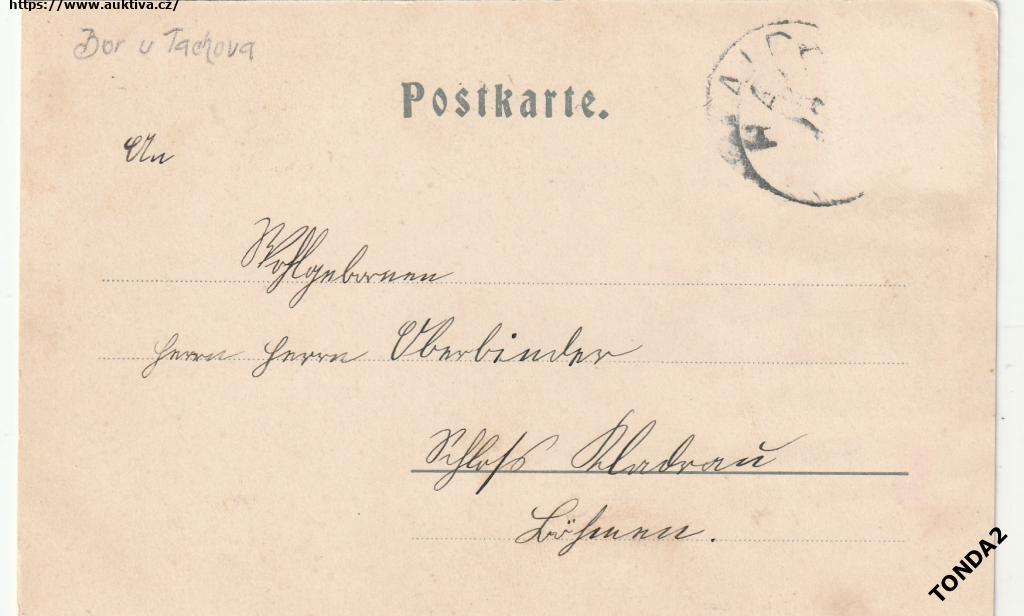 https://www.auktiva.cz/
Bor u Tachova
Postkarte.
HAID
An
Wohlgebornen
Herrn Herrn Oberbinder
Schloss Kladrau
Böhmen.
TONDA2